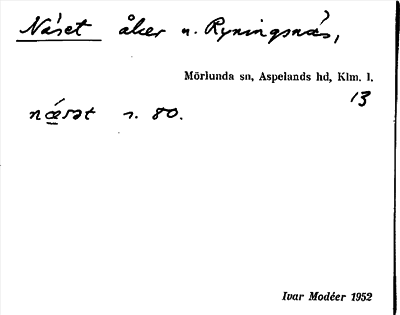 Näset åker u. Ryningsnäs,
Mörlunda sn, Aspelands hd, Klm. l.
13
nǽsət s. 80.
Ivar Modéer 1952